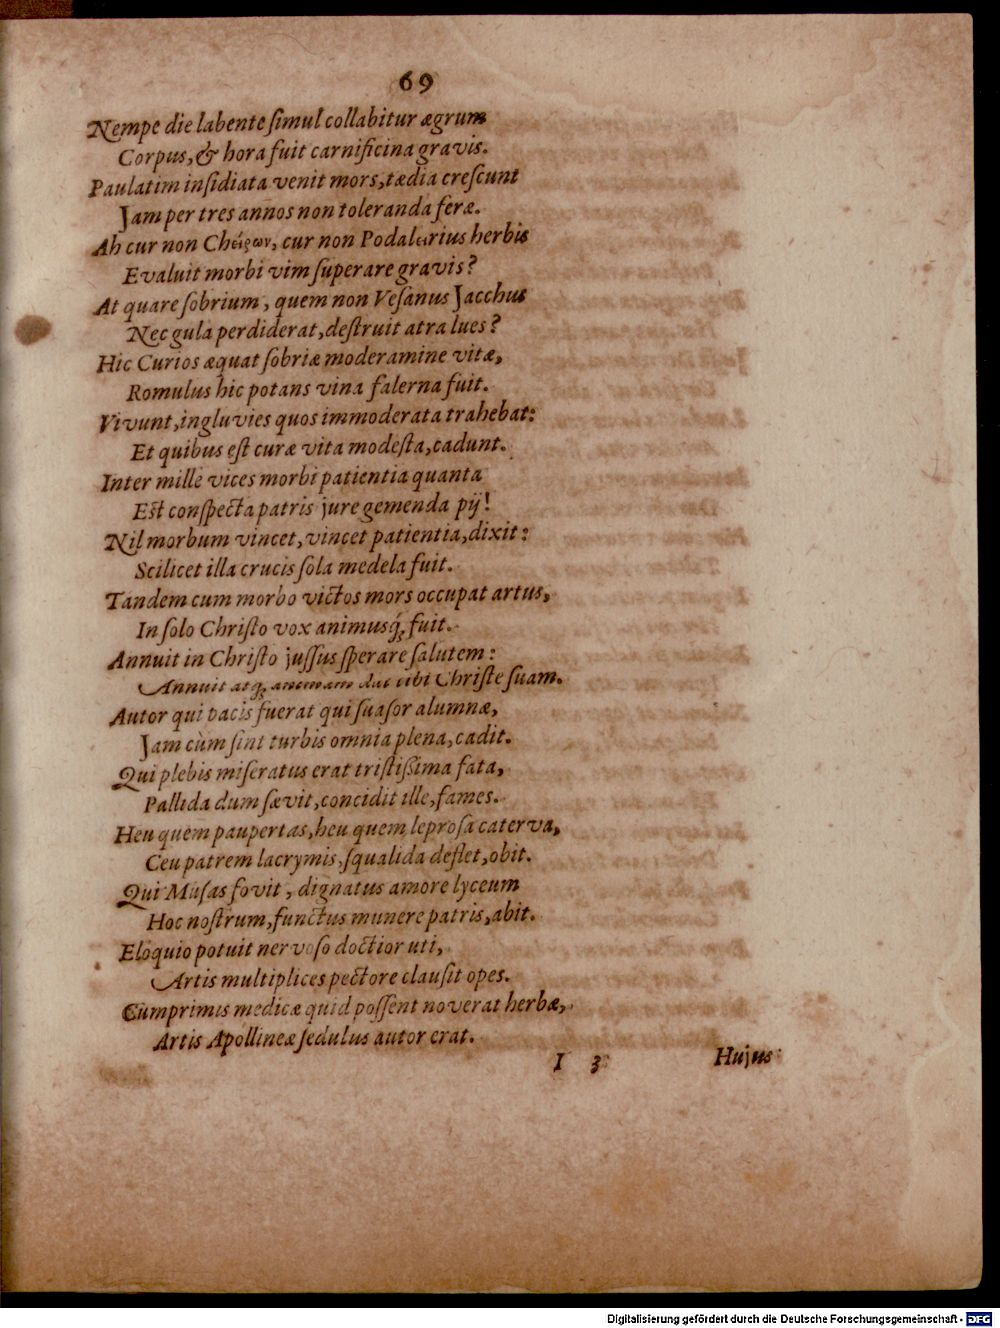 69
Nempe die labente ſimul collabitur ægrum
Corpus, & hora fuit carnificina gravis.
Paulatim inſidiata venit mors, tædia creſcunt
Jam per tres annos non toleranda feræ.
Ah cur non Cheίρων, cur non Podalarius herbis
Evaluit morbi vim ſuperare gravis?
At quare ſobrium, quem non Veſanus Jacchus
Nec gula perdiderat, deſtruit atra lues?
Hic Curios æquat ſobriæ moderamine vitæ,
Romulus hic potans vina falerna fuit.
Vivunt, ingluvies quos immoderata trahebat:
Et quibus eſt curæ vita modeſta, cadunt.
Inter mille vices morbi patientia quanta
Eſt conſpecta patris jure gemenda pij!
Nil morbum vincet, vincet patientia, dixit:
Scilicet illa crucis ſola medela fuit.
Tandem cum morbo victos mors occupat artus,
In ſolo Chriſto vox animusq́; fuit.
Annuit in Chriſto juſſus ſperare ſalutem:
Annuit atq; animam dat tibi Chriſte ſuam.
Autor qui pacis fuerat qui ſuaſor alumnæ,
Jam cùm ſint turbis omnia plena, cadit.
Qui plebis miſeratus erat triſtißima fata,
Pallida dum ſævit, concidit ille, fames.
Heu quem paupertas, heu quem leproſa caterva,
Ceu patrem lacrymis, ſqualida deflet, obit.
Qui Muſas fovit, dignatus amore lyceum
Hoc noſtrum, functus munere patris, abit.
Eloquio potuit nervoſo doctior uti,
Artis multiplices pectore clauſit opes.
Cumprimis medicæ quid poſſent noverat herbæ,
Artis Apollineæ ſedulus autor erat.
I 3
Hujus
Digitalisierung gefördert durch die Deutsche Forschungsgemeinschaft - DFG